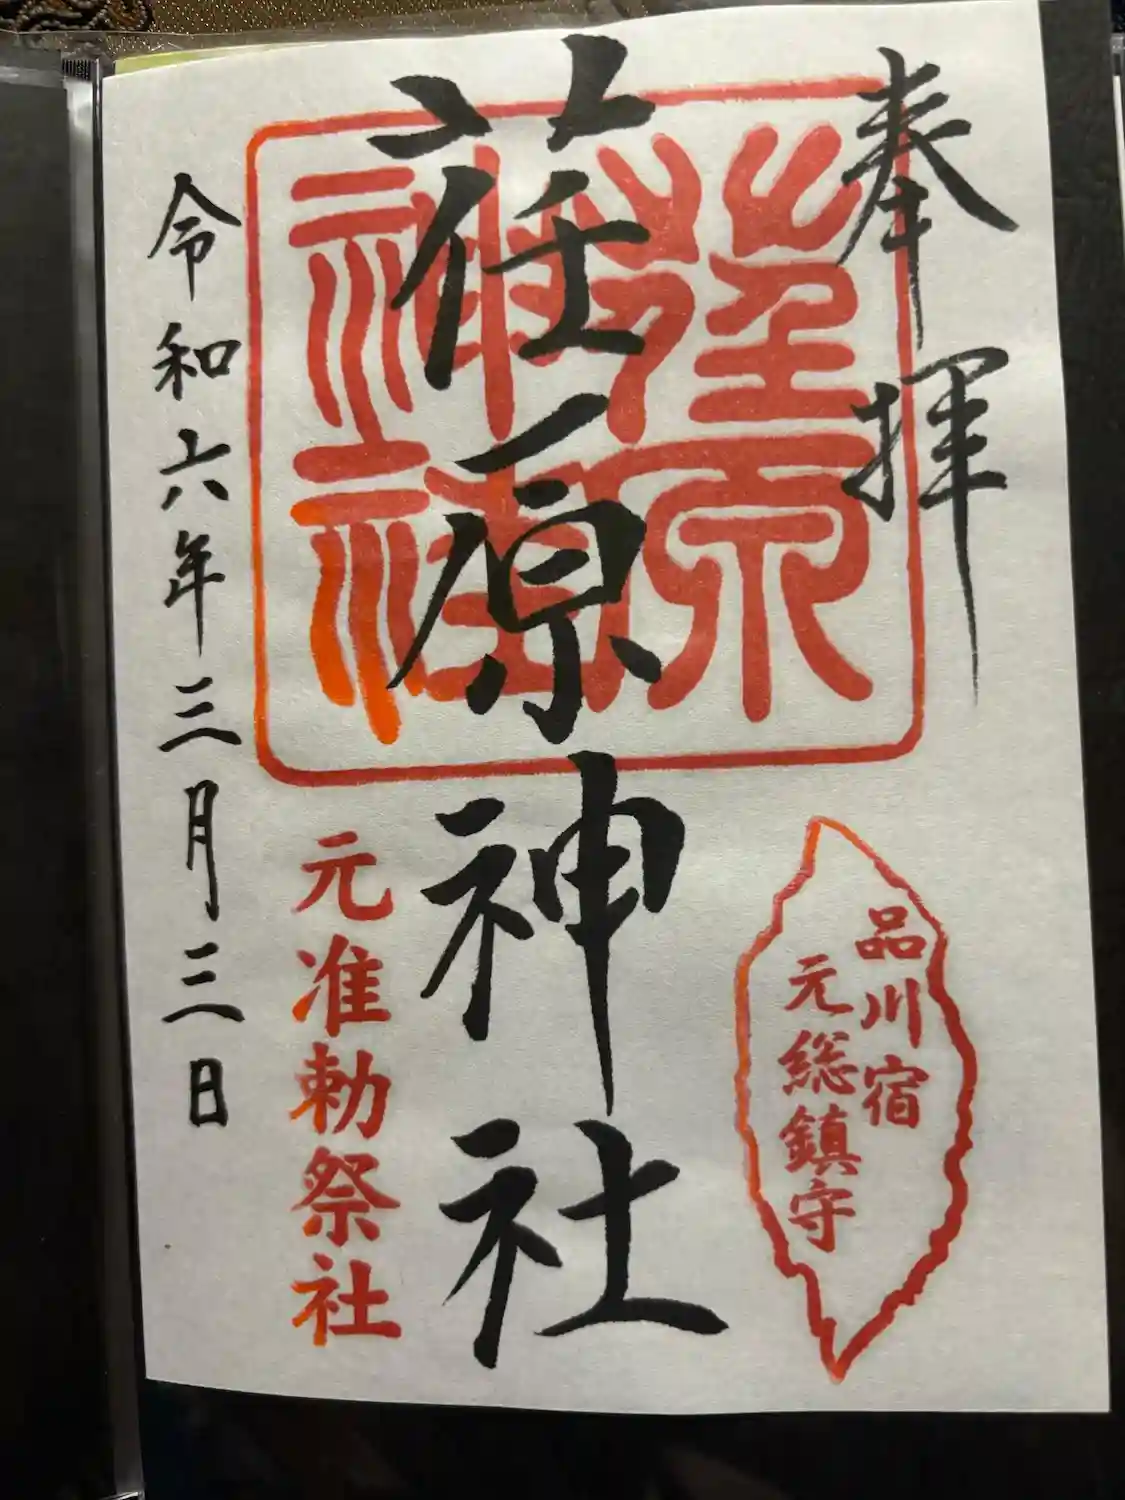 奉拝
品川宿
元総鎮守
荏原神社
荏原
神社
元准勅祭社
令和六年三月三日